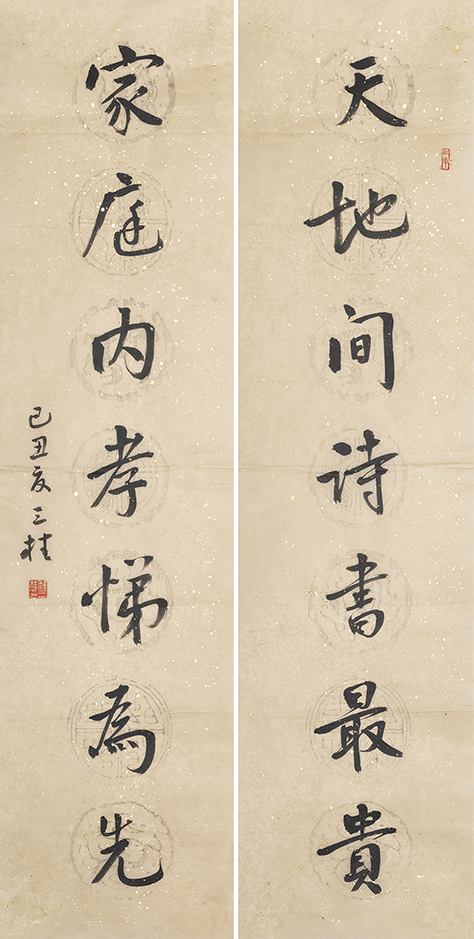 天地间诗书最貴
家庭内孝悌為先
己丑夏三桂